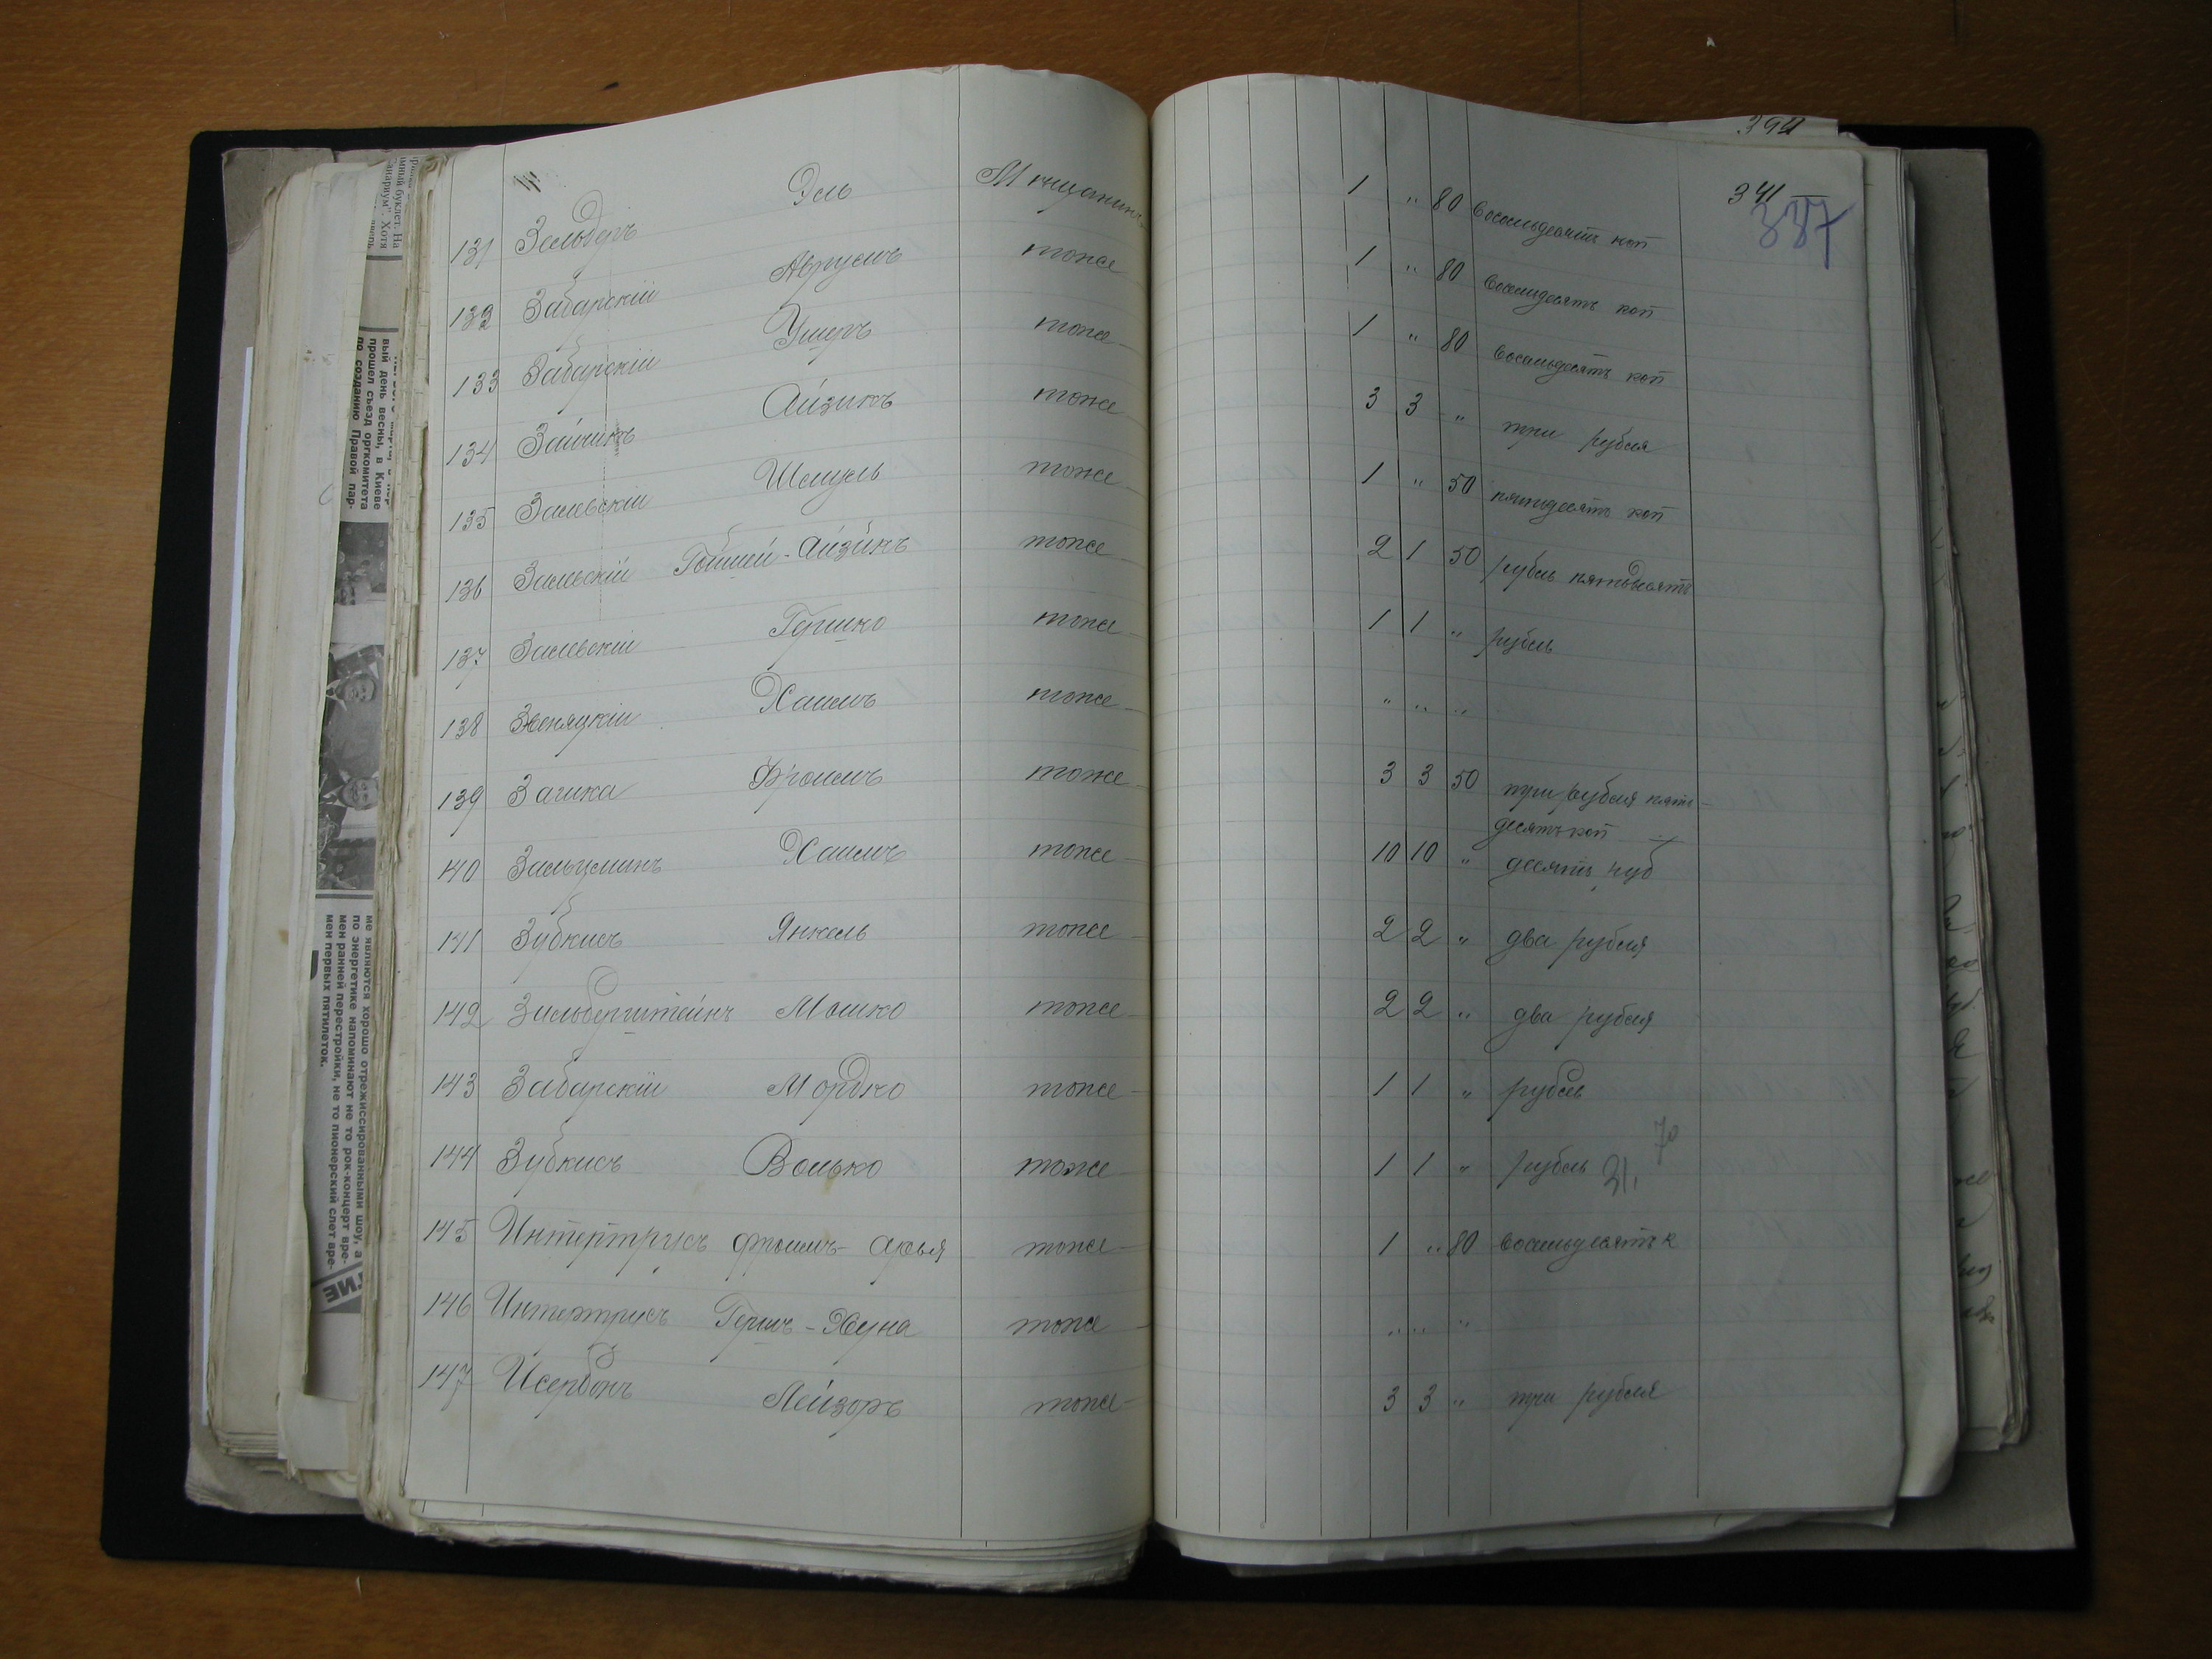 394
341
337
131 Зельдеръ Эль Мѣщанинъ 1 " 80 восемьдесятъ коп
132 Забарскій Аврумъ тоже 1 " 80 восемьдесятъ коп
133 Забарскій Ушеръ тоже 1 " 80 восемьдесятъ коп
134 Зайчикъ Айзикъ тоже 3 3 " три рубля
135 Залевскій Шмуль тоже 1 " 50 пятьдесятъ коп
136 Залевскій Айзикъ тоже 2 1 50 рубль пятьдесятъ
137 Залевскій Гершко тоже 1 1 " рубль
138 Звеняцкій Хаимъ тоже " " "
139 Зашка Фроимъ тоже 3 3 50 три рубля пять-
десятъ коп
140 Зальцманъ Хаимъ тоже 10 10 " десять руб
141 Зубкисъ Янкель тоже 2 2 " два рубля
142 Зильберштейнъ Мошко тоже 2 2 " два рубля
143 Забарскій Мордко тоже 1 1 " рубль
144 Зубкисъ Волько тоже 1 1 " рубль 31. 70
145 Интертрусъ Фроимъ-Арья тоже 1 " 80 восемьдесятъ к
146 Интертрусъ Гершъ-Хуна тоже " " "
147 Исербонъ Лейзоръ тоже 3 3 " три рубля
вый день весны, в Киеве
прошел съезд оргкомитета
по созданию Правой пар-
ме являются хорошо отрежиссированными шоу, а
по энергетике напоминают не то рок-концерт вре-
мен ранней перестройки, не то пионерский слет вре-
мен первых пятилеток.